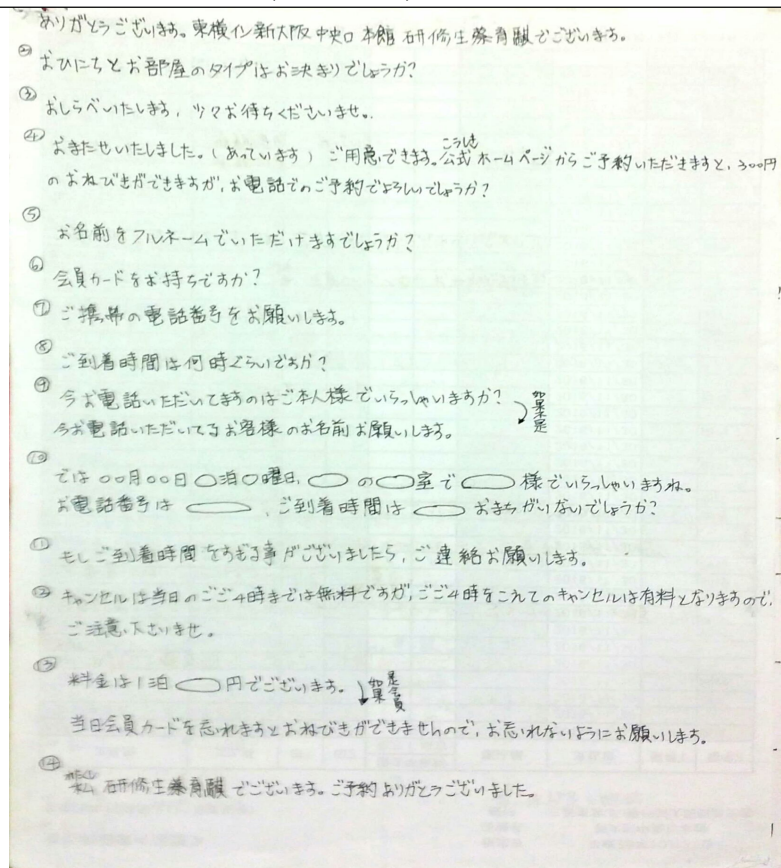 ありがとうございます。東横イン新大阪中央口本館研修生蔡育騏でございます。
② おひにちとお部屋のタイプはお決まりでしょうか?
③ おしらべいたします、少々お待ちくださいませ。
④ おまたせいたしました。(あっています) ご用意できます。公式ホームページからご予約いただきますと、300円
こうしき
のおねびきができますが、お電話でのご予約でよろしいでしょうか?
⑤ お名前をフルネームでいただけますでしょうか?
⑥ 会員カードをお持ちですか?
⑦ ご携帯の電話番号をお願いします。
⑧ ご到着時間は何時ぐらいですか?
⑨ 今お電話いただいてますのはご本人様でいらっしゃいますか?
如果不是
今お電話いただいてるお客様のお名前お願いします。
⑩ では〇〇月〇〇日〇泊〇曜日、〇の〇室で〇様でいらっしゃいますね。
お電話番号は〇、ご到着時間は〇おまちがいないでしょうか?
⑪ もしご到着時間をすぎる事がございましたら、ご連絡お願いします。
⑫ キャンセルは当日のごご4時までは無料ですが、ごご4時をこえてのキャンセルは有料となりますので、
ご注意下さいませ。
⑬ 料金は1泊〇円でございます。
如果是会員
当日会員カードを忘れますとおねびきができませんので、お忘れないようにお願いします。
⑭ 私 研修生蔡育騏でございます。ご予約ありがとうございました。